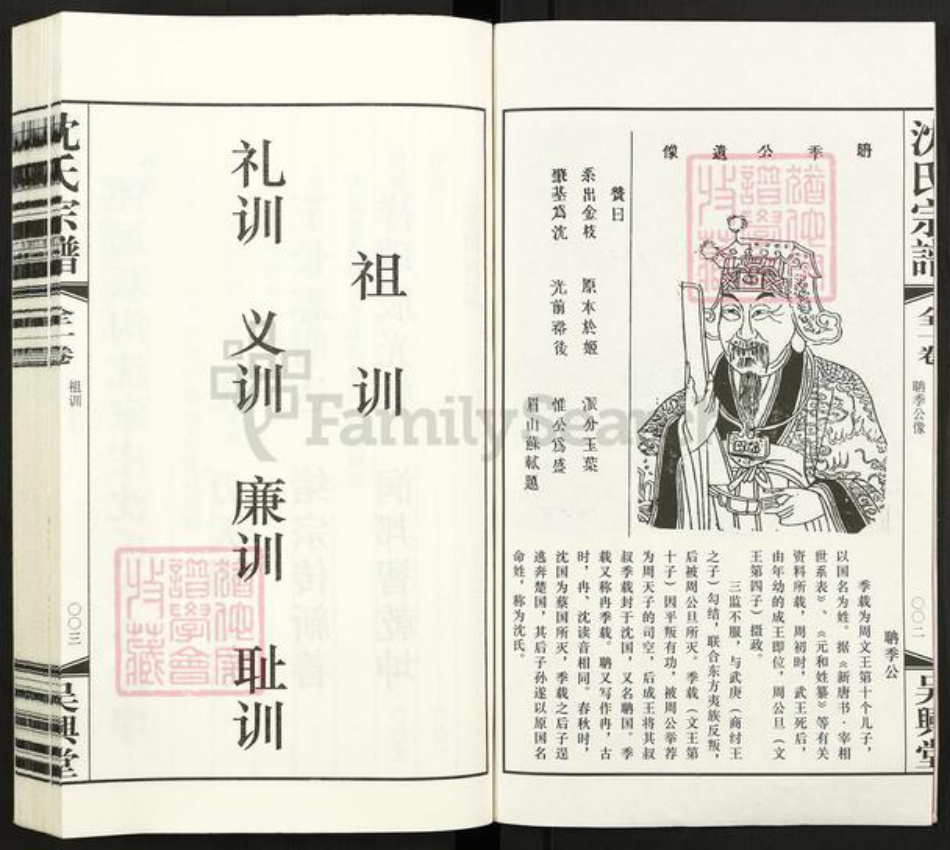 沈氏宗譜
全一卷
聃季公像
〇〇二
吴興堂
聃季公遺像
贊曰
系出金枝 原本於姬 派分玉葉
肇基爲沈 光前裕後 惟公爲盛
眉山蘇軾題
聃季公
季载为周文王第十个儿子,
以国名为姓。据《新唐书·宰相
世系表》、《元和姓纂》等有关
资料所载,周初时,武王死后,
由年幼的成王即位,周公旦(文
王第四子)摄政。
三监不服,与武庚(商纣王
之子)勾结,联合东方夷族反叛,
后被周公旦所灭。季载(文王第
十子)因平叛有功,被周公举荐
为周天子的司空,后成王将其叔
叔季载封于沈国,又名聃国。季
载又称冉季载。聃又写作冉,古
时,冉、沈读音相同。春秋时,
沈国为蔡国所灭,季载之后子逞
逃奔楚国,其后子孙遂以原国名
命姓,称为沈氏。
祖训
礼训 义训 廉训 耻训
沈氏宗譜
全一卷
祖训
〇〇三
吴興堂
FamilySearch